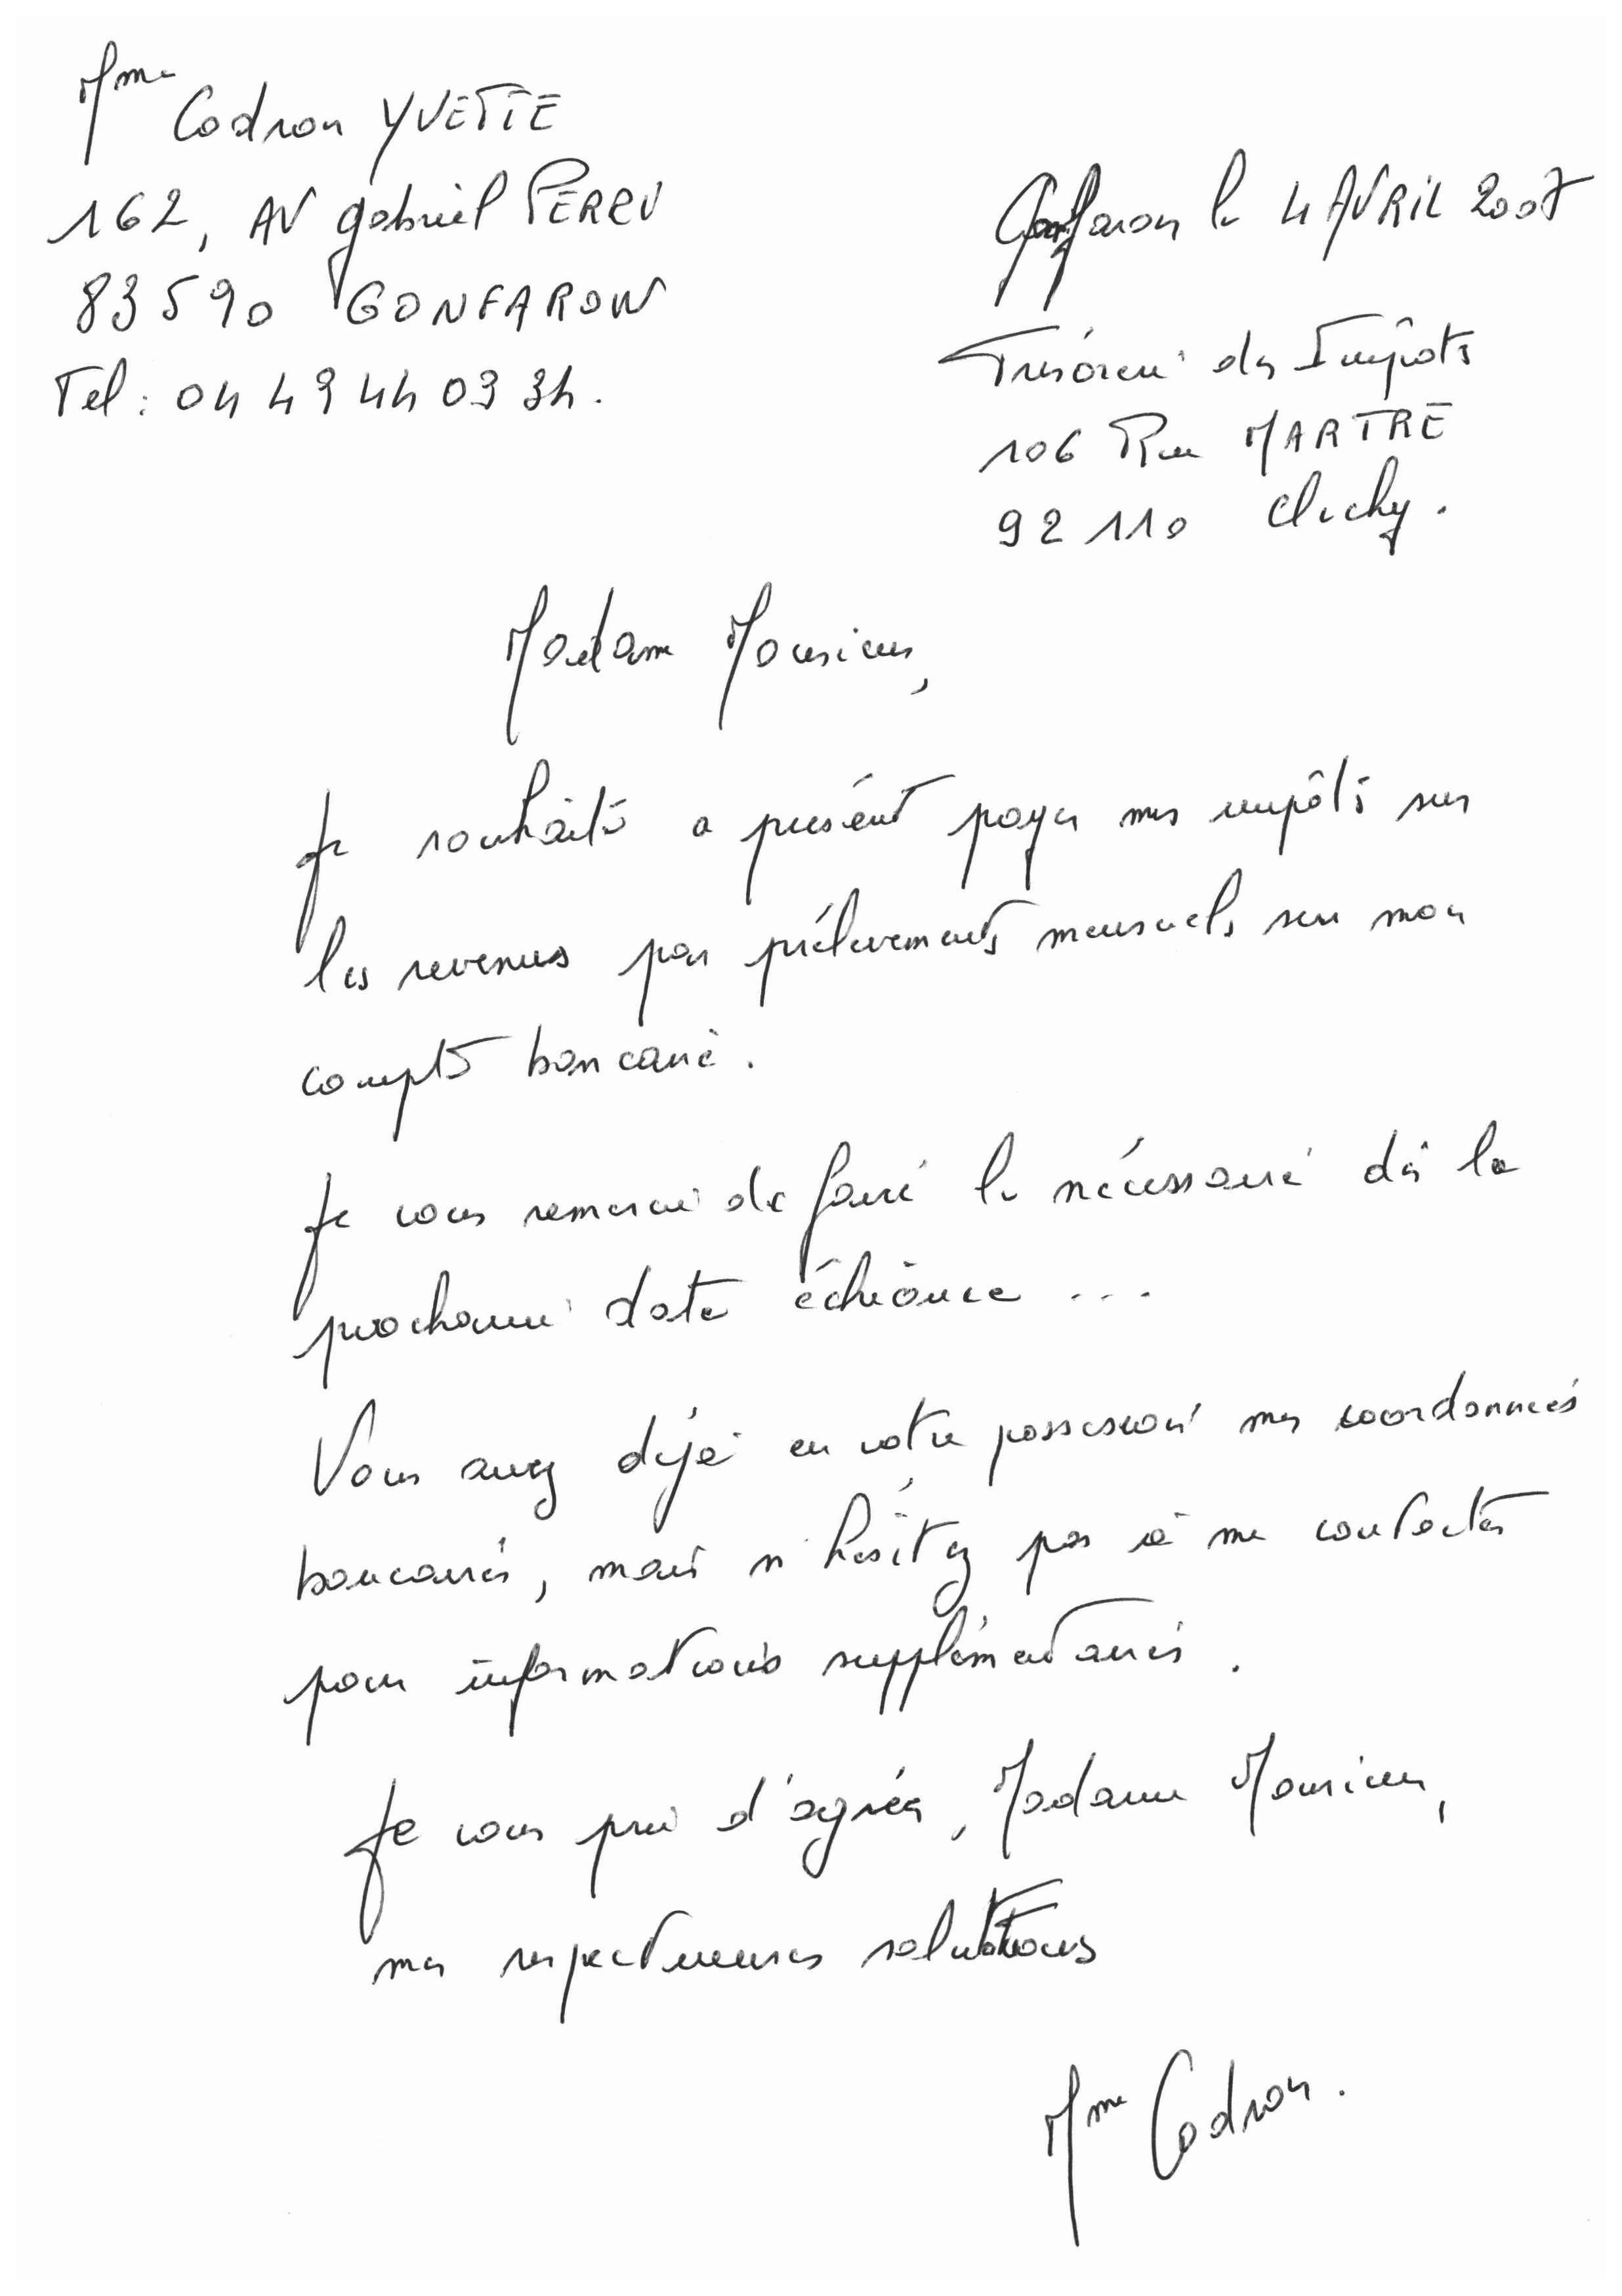 Mme Codron YVETTE
162, AV gabriel PERRU
83590 GONFARON
Tel : 04 49 44 03 34.
Gonfaron le 4 AVRIL 2007
Trésorerie des Impôts
106 Rue MARTRE
92110 Clichy.
Madame Monsieur,
Je souhaite a présent payer mes impôts sur
les revenus par prélevements mensuels sur mon
compte bancaire.
Je vous remercie de faire le nécessaire dès la
prochaine date échéance ...
Vous avez déjà en votre possession mes coordonnées
bancaires, mais n'hésitez pas à me contacter
pour informations supplémentaires.
Je vous prie d'agréer, Madame Monsieur,
mes respectueuses salutations
Mme Codron.